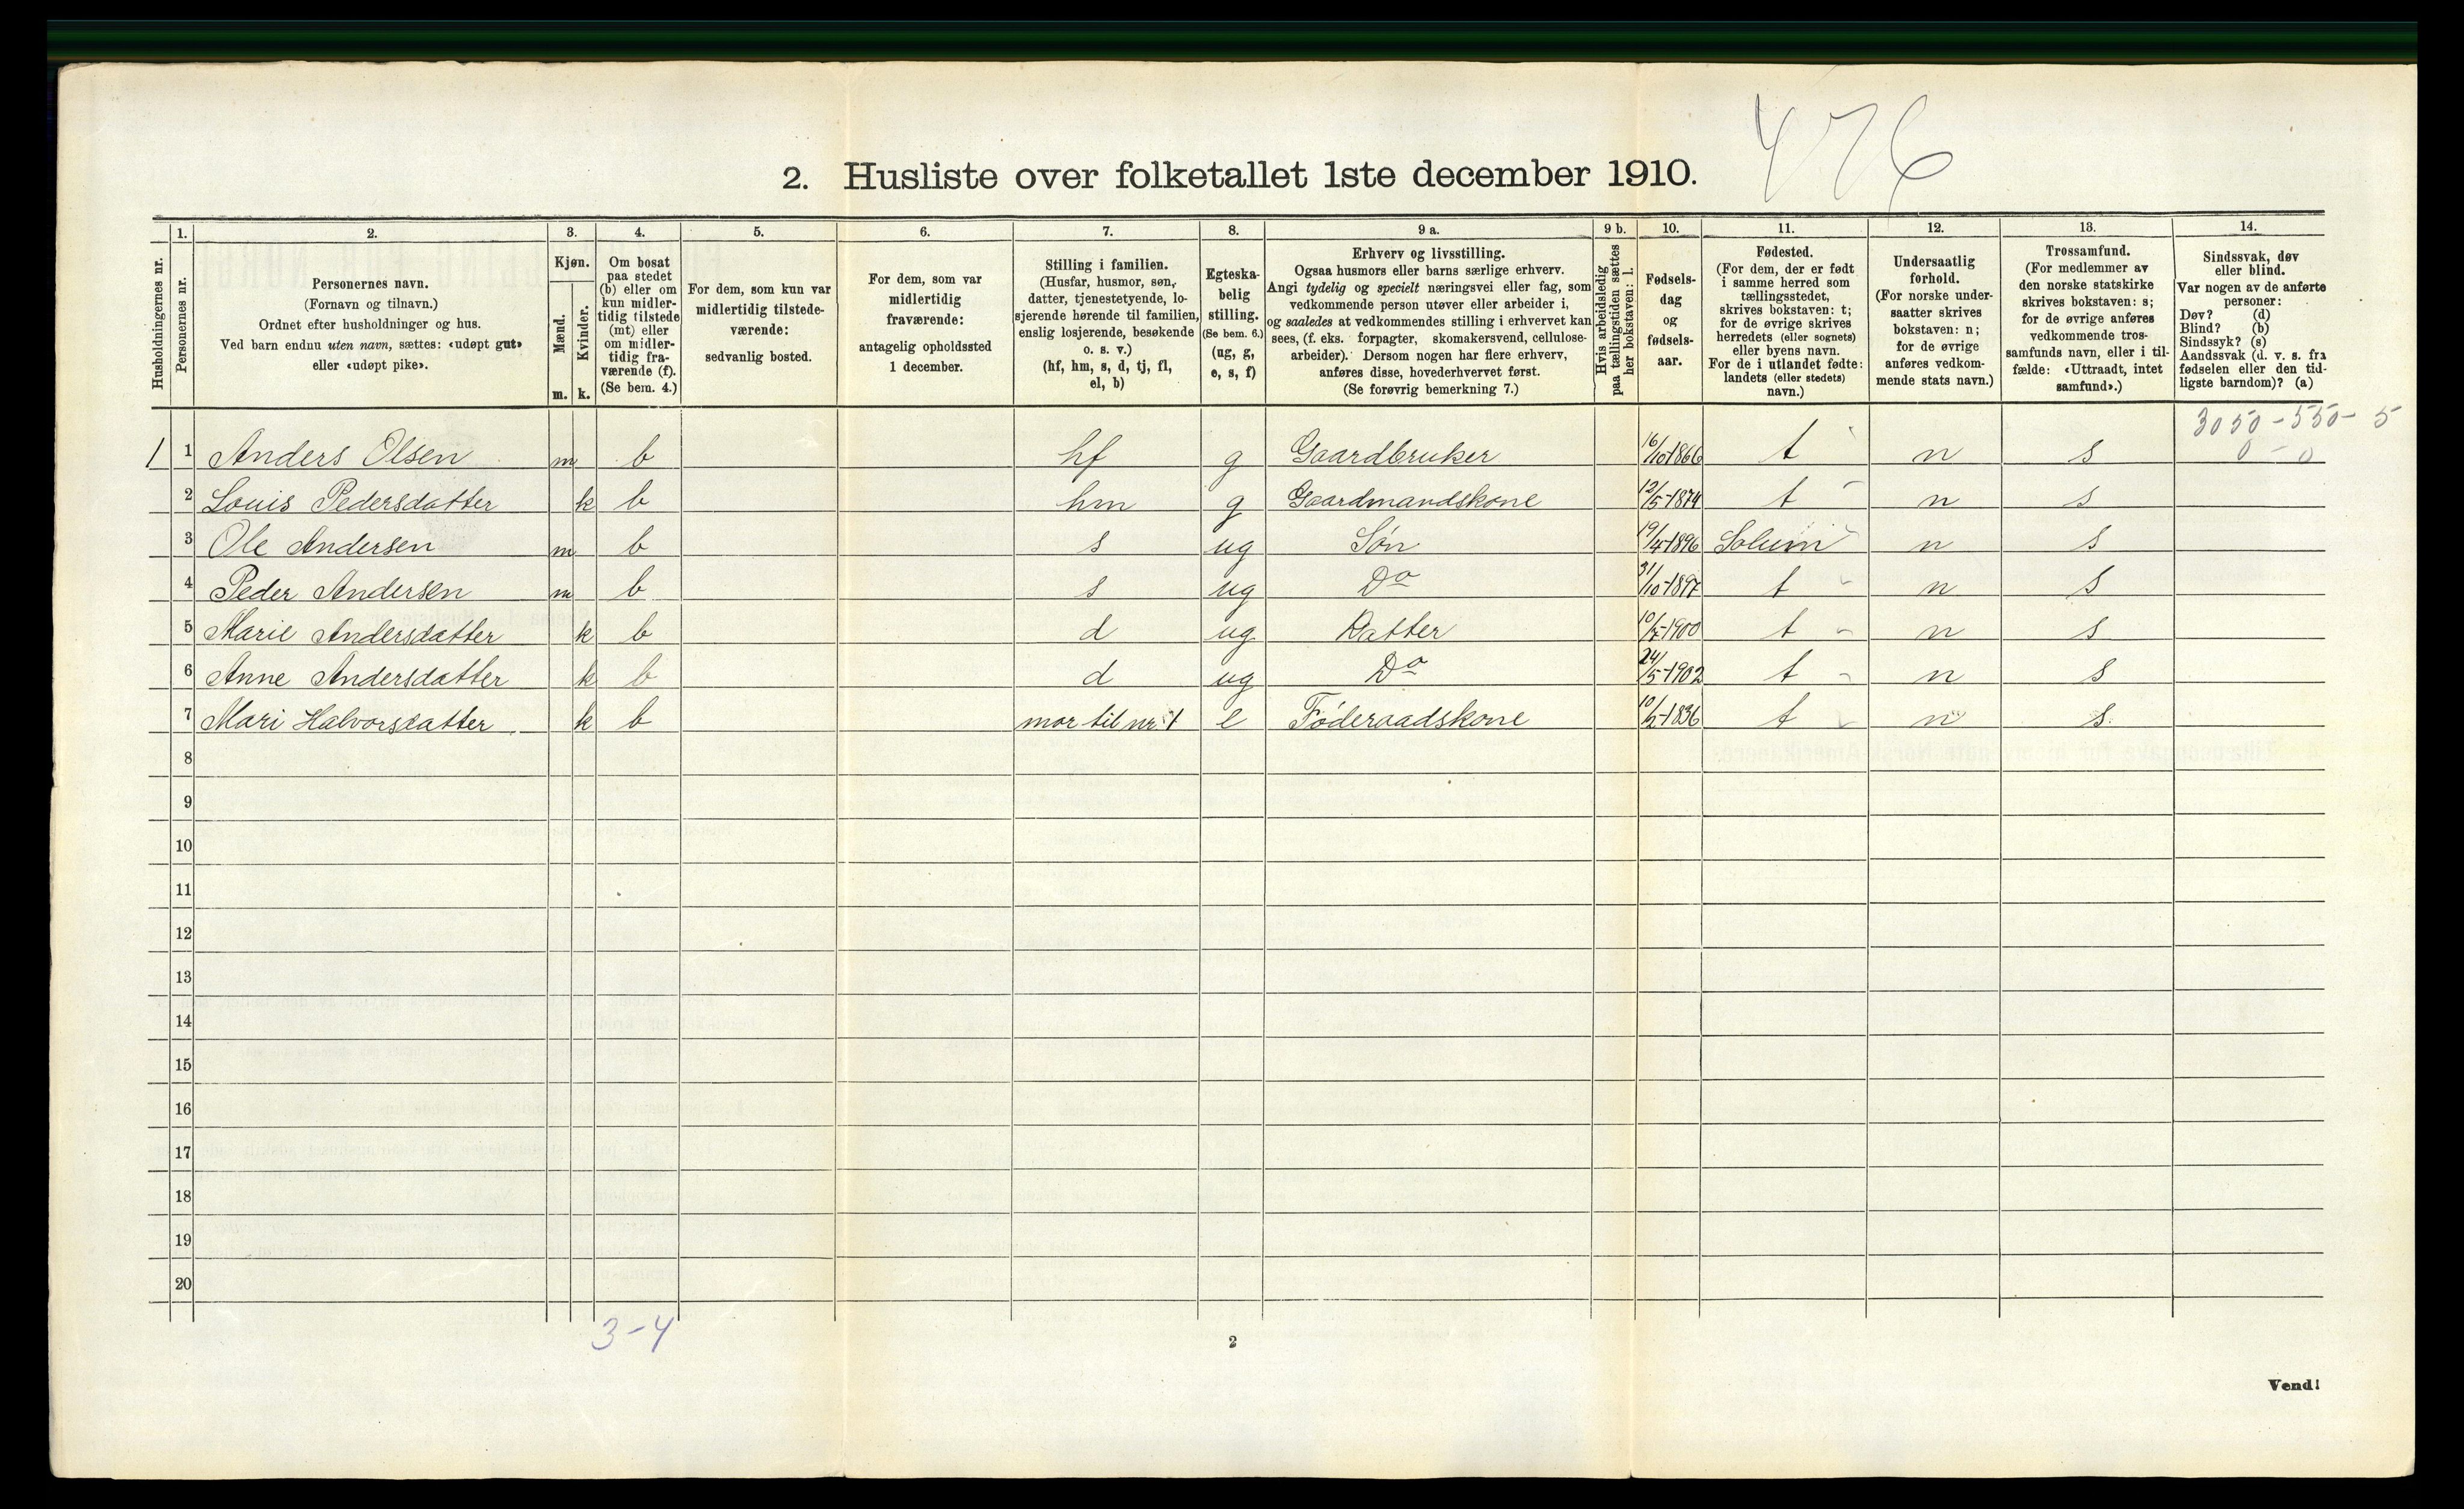 476
2. Husliste over folketallet 1ste december 1910.
1. 2. 3. 4. 5. 6. 7. 8. 9 a. 9 b. 10. 11. 12. 13. 14.
Husholdningernes nr.
Personernes nr.
Personernes navn.
(Fornavn og tilnavn.)
Ordnet efter husholdninger og hus.
Ved barn endnu uten navn, sættes: «udøpt gut»
eller «udøpt pike».
Kjøn.
Mænd.
Kvinder.
m. k.
Om bosat
paa stedet
(b) eller om
kun midler-
tidig tilstede
(mt) eller
om midler-
tidig fra-
værende (f).
(Se bem. 4.)
For dem, som kun var
midlertidig tilstede-
værende:
sedvanlig bosted.
For dem, som var
midlertidig
fraværende:
antagelig opholdssted
1 december.
Stilling i familien.
(Husfar, husmor, søn,
datter, tjenestetyende, lo-
sjerende hørende til familien,
enslig losjerende, besøkende
o. s. v.)
(hf, hm, s, d, tj, fl,
el, b)
Egteska-
belig
stilling.
(Se bem. 6.)
(ug, g,
e, s, f)
Erhverv og livsstilling.
Ogsaa husmors eller barns særlige erhverv.
Angi tydelig og specielt næringsvei eller fag, som
vedkommende person utøver eller arbeider i,
og saaledes at vedkommendes stilling i erhvervet kan
sees, (f. eks. forpagter, skomakersvend, cellulose-
arbeider). Dersom nogen har flere erhverv,
anføres disse, hovederhvervet først.
(Se forøvrig bemerkning 7.)
Hvis arbeidsledig
paa tællingstiden sættes
her bokstaven: l.
Fødsels-
dag
og
fødsels-
aar.
Fødested.
(For dem, der er født
i samme herred som
tællingsstedet,
skrives bokstaven: t;
for de øvrige skrives
herredets (eller sognets)
eller byens navn.
For de i utlandet fødte:
landets (eller stedets)
navn.)
Undersaatlig
forhold.
(For norske under-
saatter skrives
bokstaven: n;
for de øvrige
anføres vedkom-
mende stats navn.)
Trossamfund.
(For medlemmer av
den norske statskirke
skrives bokstaven: s;
for de øvrige anføres
vedkommende tros-
samfunds navn, eller i til-
fælde: «Uttraadt, intet
samfund».)
Sindssvak, døv
eller blind.
Var nogen av de anførte
personer:
Døv? (d)
Blind? (b)
Sindssyk? (s)
Aandssvak (d. v. s. fra
fødselen eller den tid-
ligste barndom)? (a)
3050-550-5
0 - 0
1 1 Anders Olsen m b hf g Gaardbruker 16/10-1866 t n s
2 Louis Pedersdatter k b hm g Gaardmandskone 12/5-1874 t n s
3 Ole Andersen m b s ug Søn 19/4-1896 Solum n s
4 Peder Andersen m b s ug Do 31/10-1897 t n s
5 Marie Andersdatter k b d ug Datter 10/7-1900 t n s
6 Anne Andersdatter k b d ug Do 24/5-1902 t n s
7 Mari Halvorsdatter k b mor til nr. 1 e Føderaadskone 10/2-1836 t n s
8
9
10
11
12
13
14
15
16
17
18
19
20
3-4
2
Vend!